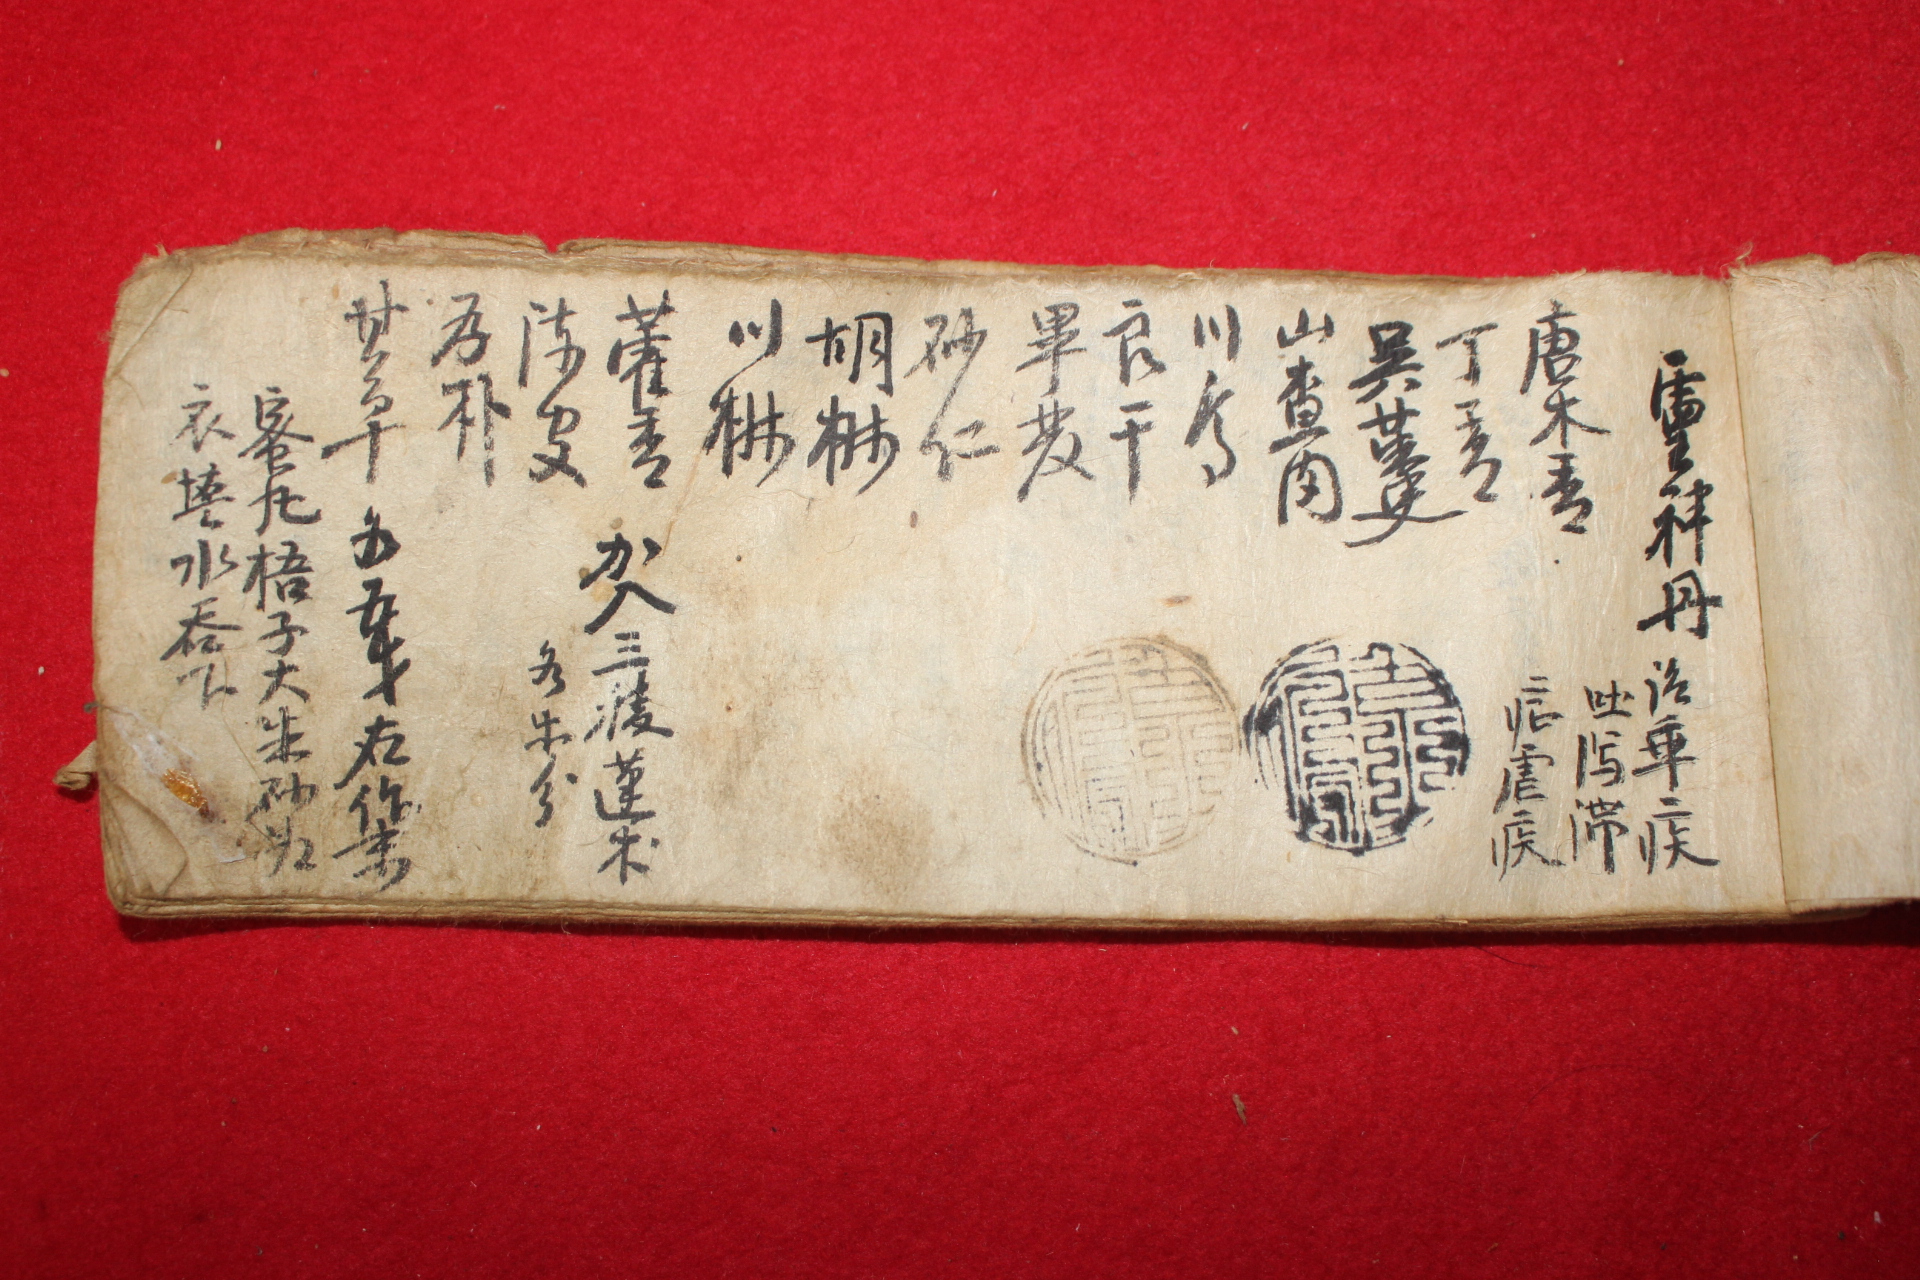 靈神丹 治車疾
吐瀉滯
疟虐疾
唐木香
丁香
吳茱萸
山査肉
川烏
良干
畢茇
砂仁
胡椒
川椒
藿香 加入 三稜 蓬朮
各 分
陳皮
厚朴
甘草 各五戔 右作末
蜜丸梧子大朱砂為
衣 水吞下